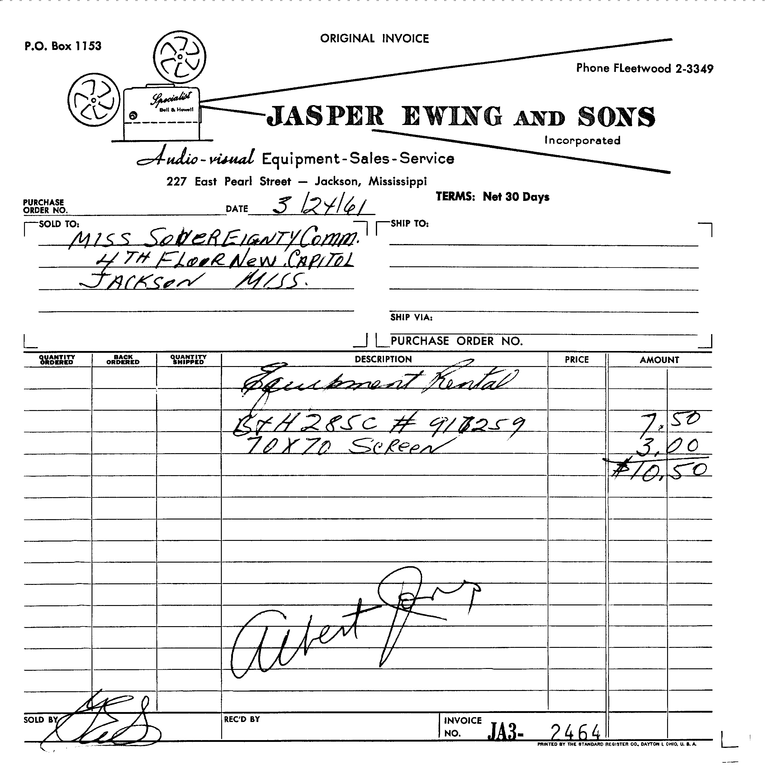 ORIGINAL INVOICE
P.O. Box 1153
Phone FLeetwood 2-3349
Specialist
Bell & Howell
JASPER EWING AND SONS
Incorporated
Audio-visual Equipment-Sales-Service
227 East Pearl Street — Jackson, Mississippi
TERMS: Net 30 Days
PURCHASE ORDER NO. DATE 3/24/61
SOLD TO: SHIP TO:
MISS SOVEREIGNTY Comm.
4TH FLOOR NEW CAPITOL
JACKSON MISS.
SHIP VIA:
PURCHASE ORDER NO.
QUANTITY ORDERED BACK ORDERED QUANTITY SHIPPED DESCRIPTION PRICE AMOUNT
Equipment Rental
B+H 285C # 917259 7.50
70X70 SCREEN 3.00
$10.50
Albert Jones
SOLD BY REC'D BY INVOICE NO. JA3- 2464
PRINTED BY THE STANDARD REGISTER CO., DAYTON 1, OHIO, U. S. A.